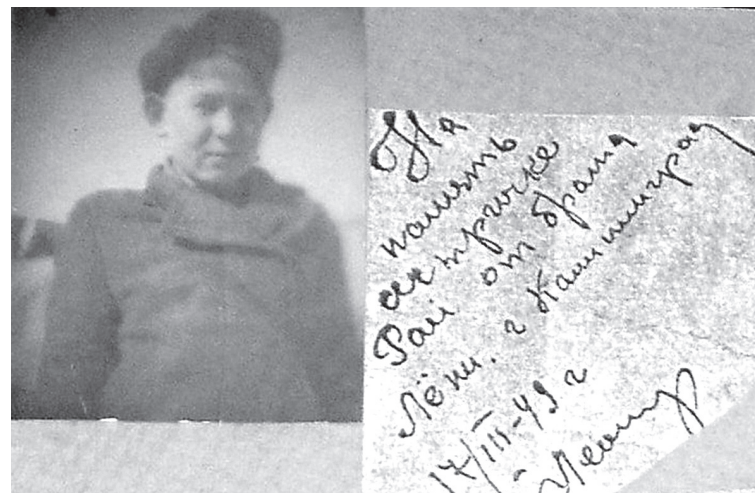 На
память
сестричке
Раи от брата
Лёни. г Калининград
17/III-49 г